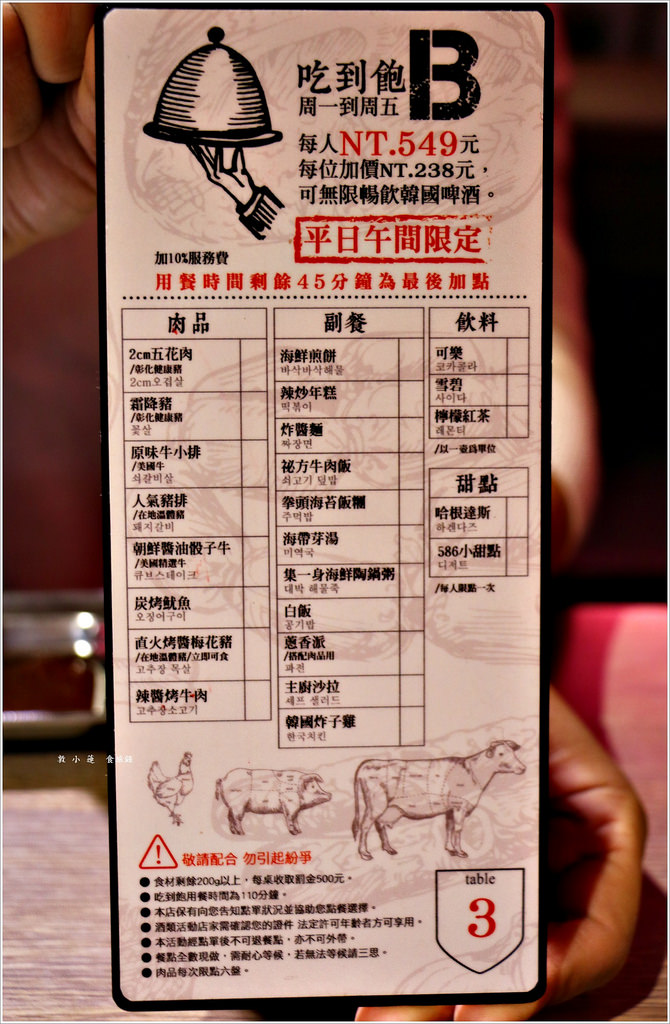 吃到飽
B
周一到周五
每人NT.549元
每位加價NT.238元，
可無限暢飲韓國啤酒。
平日午間限定
加10%服務費
用餐時間剩餘45分鐘為最後加點
肉品
2cm五花肉
/彰化健康豬
2cm오겹살
霜降豬
/彰化健康豬
꽃살
原味牛小排
/美國牛
쇠갈비살
人氣豬排
/在地溫體豬
돼지갈비
朝鮮醬油骰子牛
/美國精選牛
큐브스테이크
炭烤魷魚
오징어구이
直火烤醬梅花豬
/在地溫體豬/立即可食
고추장 목살
辣醬烤牛肉
고추장소고기
副餐
海鮮煎餅
바삭바삭해물
辣炒年糕
떡볶이
炸醬麵
짜장면
祕方牛肉飯
쇠고기 덮밥
拳頭海苔飯糰
주먹밥
海帶芽湯
미역국
集一身海鮮陶鍋粥
대박 해물죽
白飯
공기밥
蔥香派
/搭配肉品用
파전
主廚沙拉
셰프 샐러드
韓國炸子雞
한국치킨
飲料
可樂
코카콜라
雪碧
사이다
檸檬紅茶
레몬티
/以一壺為單位
甜點
哈根達斯
하겐다즈
586小甜點
디저트
/每人限點一次
敦小蓮 食
敬請配合 勿引起紛爭
● 食材剩餘200g以上，每桌收取罰金500元。
● 吃到飽用餐時間為110分鐘。
● 本店保有向您告知點單狀況並協助您點餐選擇。
● 酒類活動店家需確認您的證件 法定許可年齡者方可享用。
● 本活動經點單後不可退餐點，亦不可外帶。
● 餐點全數現做，需耐心等候，若無法等候請三思。
● 肉品每次限點六盤。
table
3